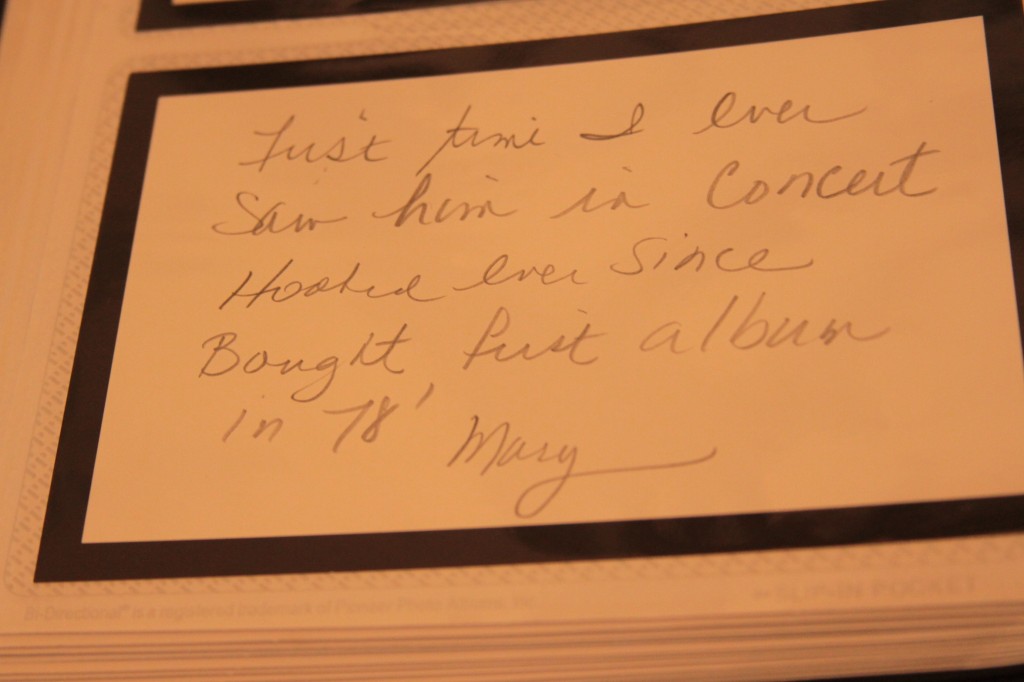 First time I ever
Saw him in Concert
Hooked ever since
Bought first album
in 78'
Mary
Bi-Directional® is a registered trademark of Pioneer Photo Albums, Inc
SLIP-IN POCKET